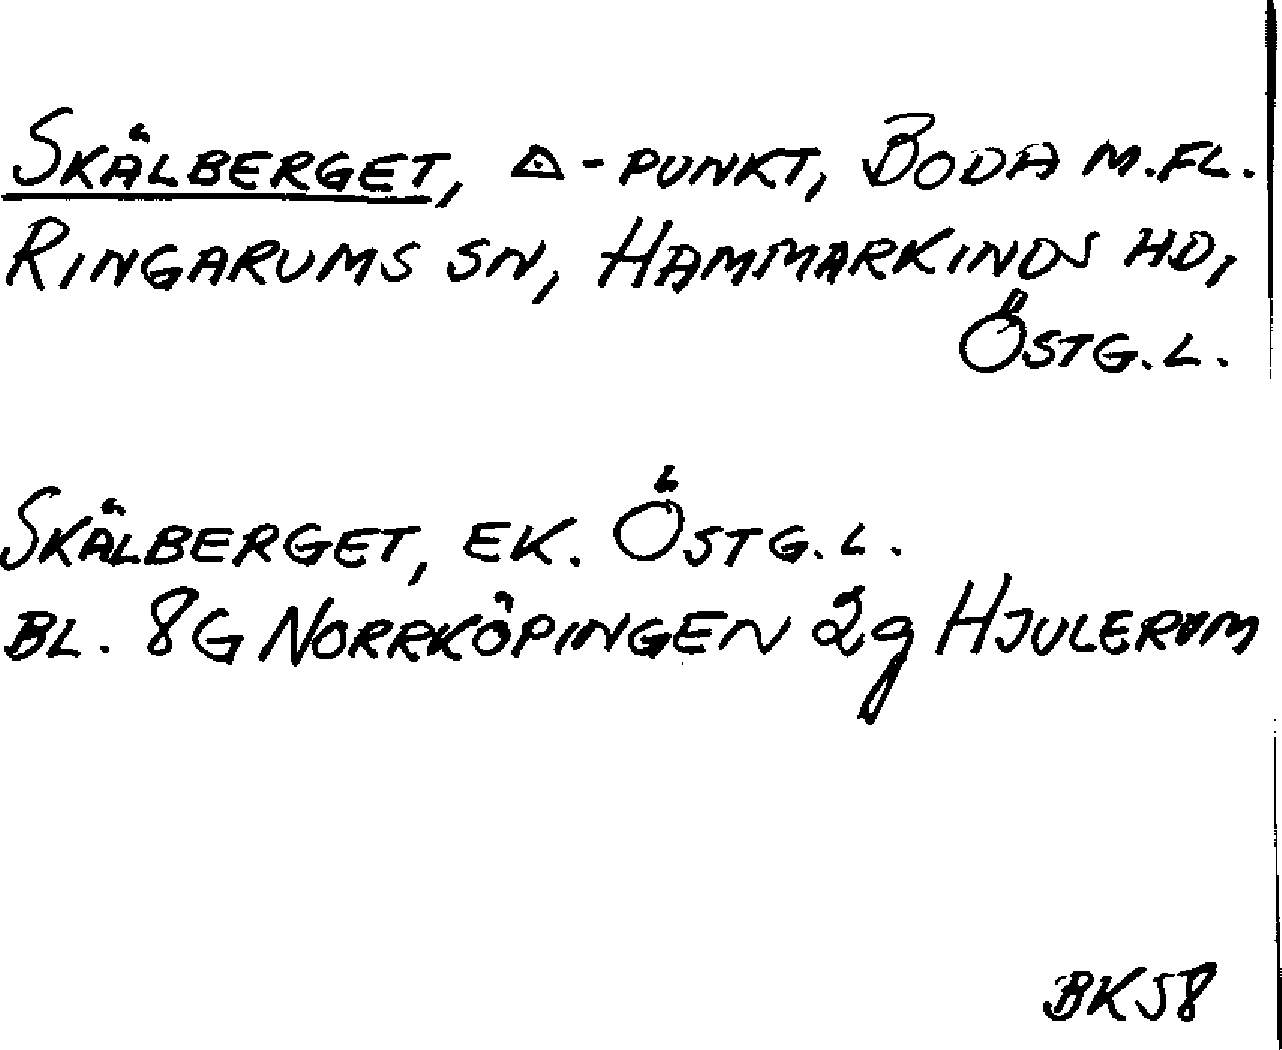 SKÄLBERGET, ⟁-PUNKT, BODA M.FL.
RINGARUMS SN, HAMMARKINDS HD,
ÖSTG.L.
SKÄLBERGET, EK. ÖSTG.L.
BL. 8G NORRKÖPINGEN 2g HJULERUM
BK58